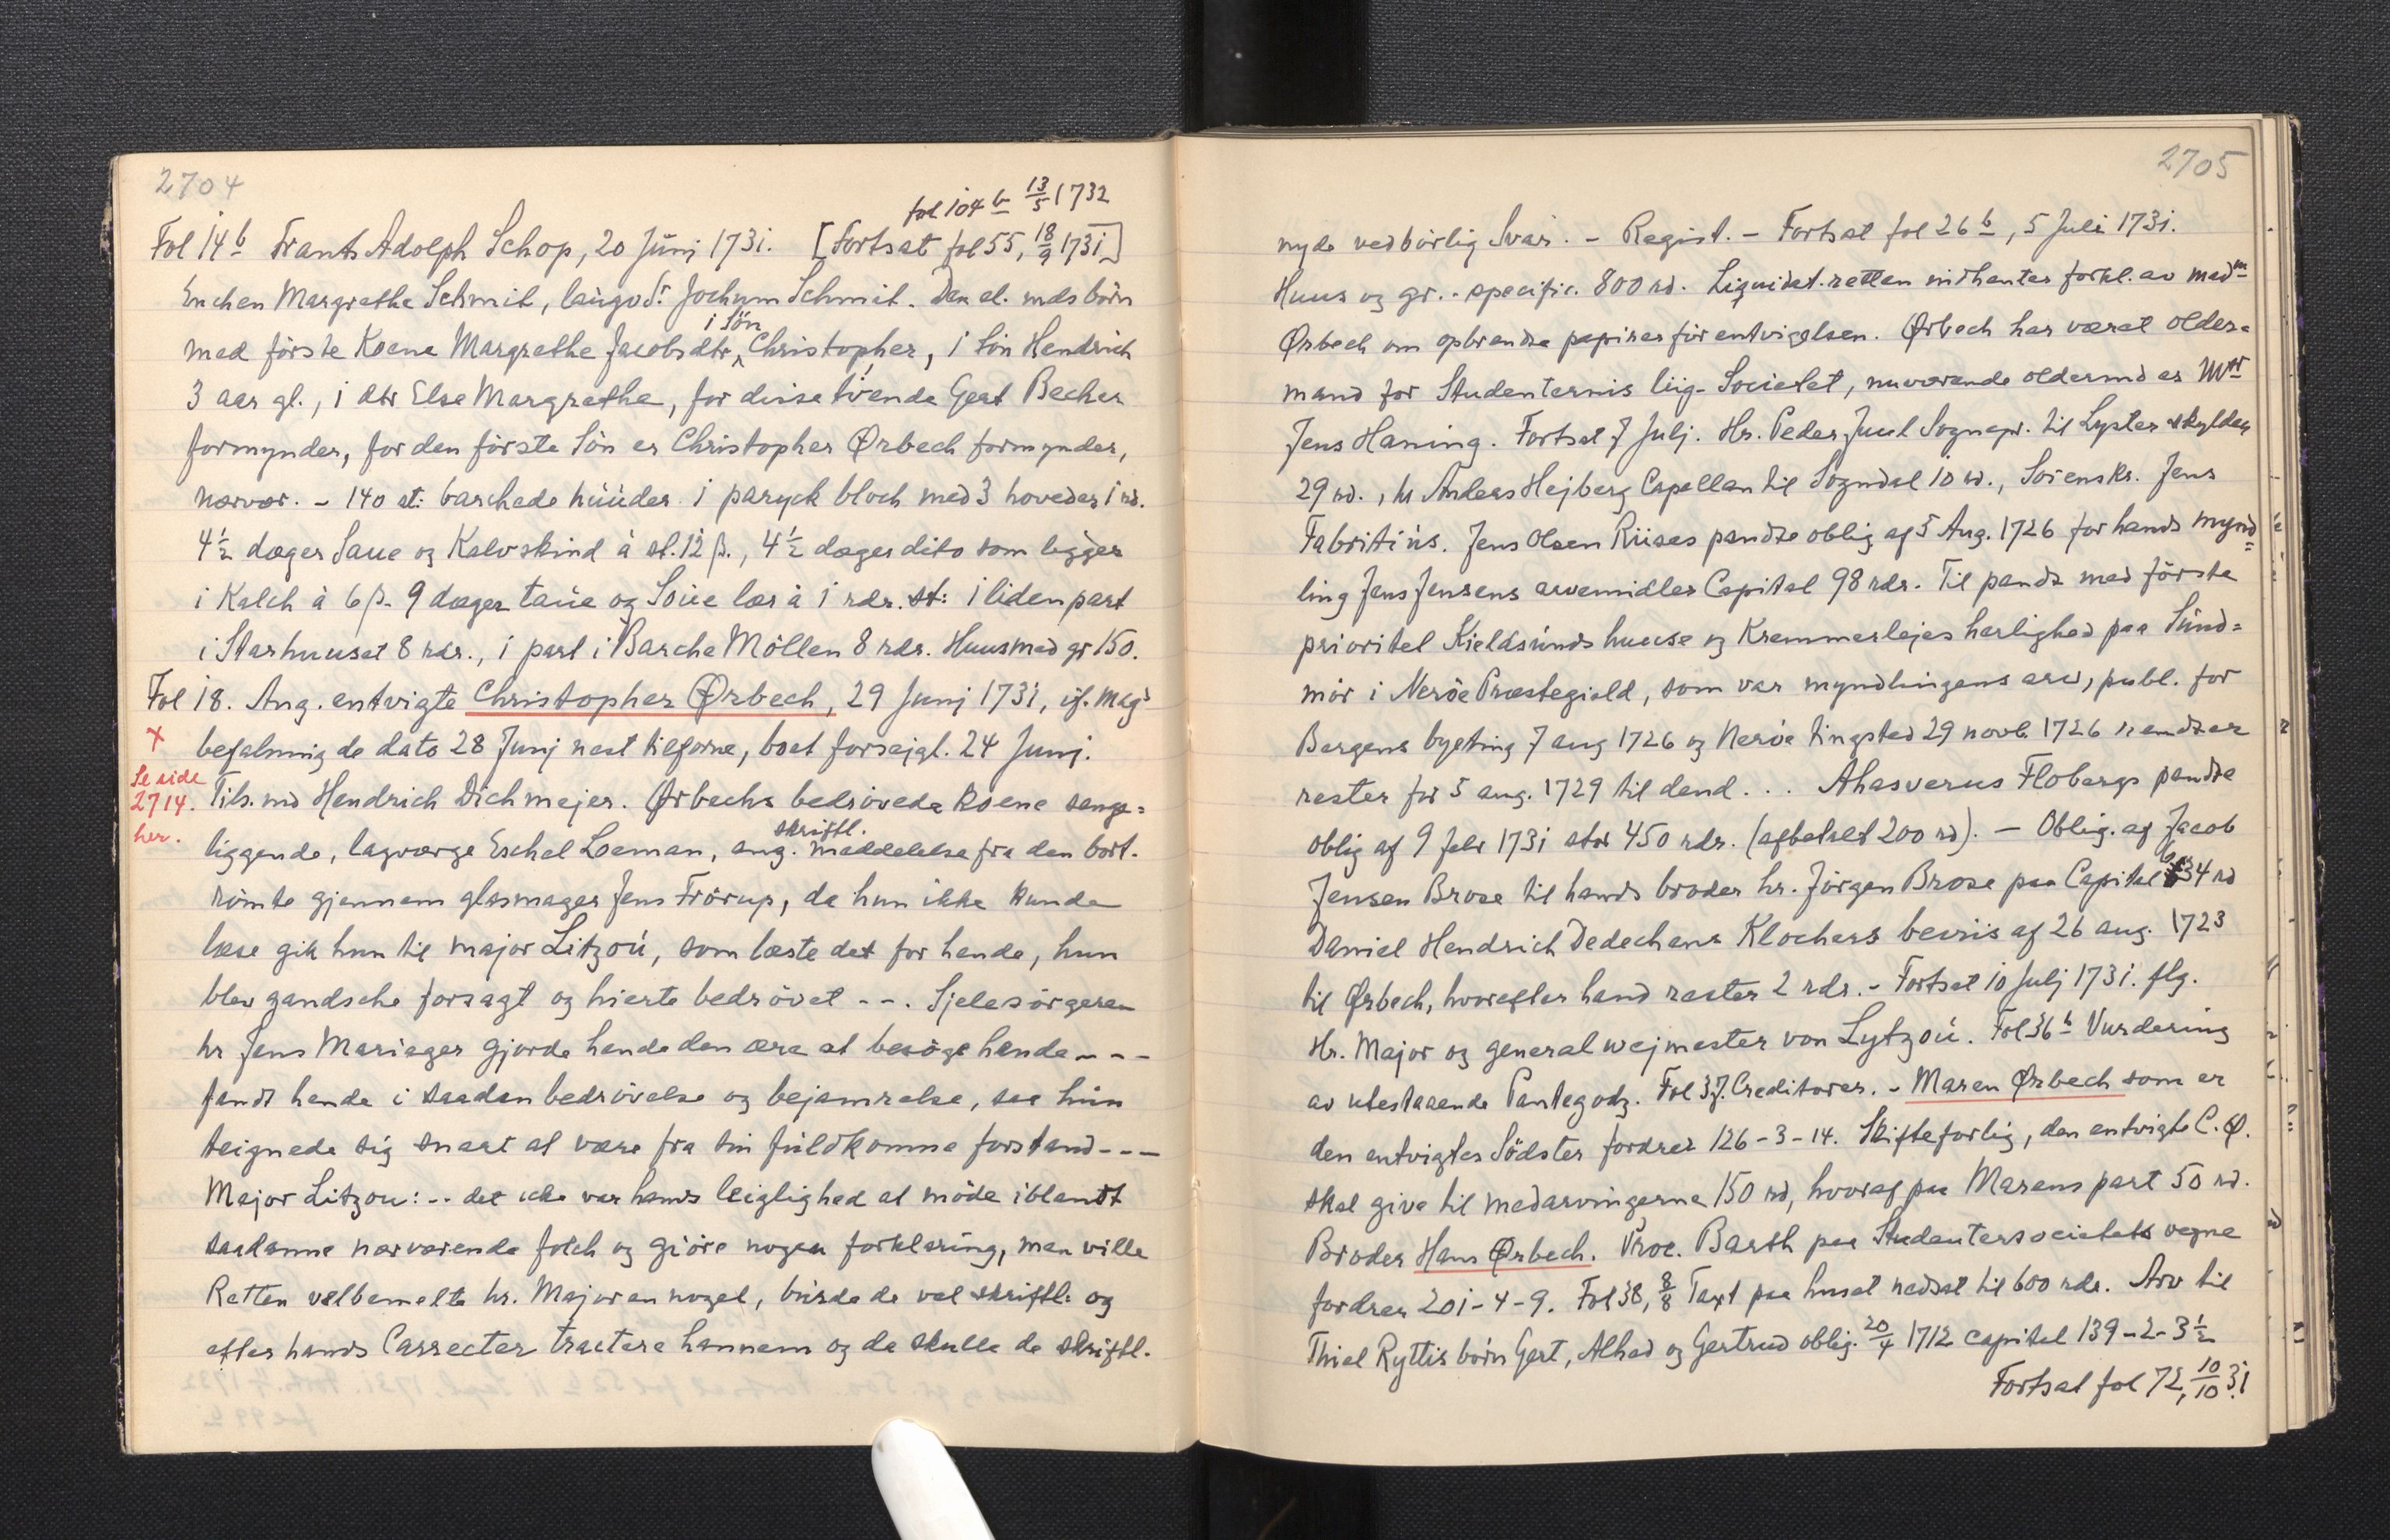 2704
fol 104 b 13/5 1732
Fol 14 b Frants Adolph Schop, 20 Junj 1731. [Fortsat fol 55, 18/9 1731]
Enchen Margrethe Schmit, laugvd: Jochum Schmit. Den al. mds børn
med første Koene Margrethe Jacobsdtr, 1 Søn Christopher, 1 Søn Hendrich
3 aar gl., 1 dtr Else Margrethe, for disse tvende Gert Becher
formynder, for den første Søn er Christopher Ørbech formynder,
nærvær. - 140 st: barchede huuder. 1 paryck bloch med 3 hoveder 1 rd.
4½ deger Saue og Kalvskind à st. 12 β., 4½ deger dito som ligger
i Kalch à 6 β. 9 deger taue og Soue lær à 1 rdr. st: 1 liden part
i Starhuuset 8 rdr., 1 part i Barche Møllen 8 rdr. Huus med gr 150.
Fol 18. Ang. entvigte Christopher Ørbech, 29 Junj 1731, if. Mag:s
+ befalning de dato 28 Junj nest tilforne, boet forsejgl. 24 Junj.
Se side
2714.
her.
Tils. md Hendrich Dichmejer. Ørbechs bedrøvede Koene senge=
liggende, lagværge Eschel Loeman, ang. skriftl. meddelelse fra den bort.
rømte gjennem glasmager Jens Frørup, da hun ikke kunde
læse gik hun til major Litzou, som læste det for hende, hun
blev gandsche forsagt og hierte bedrøvet - - . Sjelesørgeren
hr Jens Mariager gjorde hende den ære at besøge hende - - -
fandt hende i saadan bedrøvelse og bejamrelse, saa hun
teignede sig snart at være fra sin fuldkomne forstand - - -
Major Litzou: - - det icke var hands leiglighed at møde iblandt
saadanne nærværende folch og giøre nogen forklaring, men ville
Retten velbemelte hr. Majoren noget, burde de vel skriftl: og
efter hands Carrecter tractere hannem og da skulle de skriftl.
2705
nyde vedbørlig Svar. - Regist. - Fortsat fol 26 b, 5 Juli 1731.
Huus og gr. - specific. 800 rd. Liquidet. retten indhenter forkl. av mad m
Ørbech om opbrendte papirer før entvigelsen. Ørbech har været older=
mand for Studenternis liig-Societet, nuværende oldermd er Mr
Jens Haning. Fortsat 7 Julj. Hr. Peder Juul Sognepr. til Lyster skylder
29 rd., hr Anders Hejberg Capellan til Sogndal 10 rd., Sorenskr. Jens
Fabritius. Jens Olsen Riises pandte oblig af 5 Aug. 1726 for hands mynd=
ling Jens Jensens arvemidler Capital 98 rdr. Til pandt med første
prioritet Kieldsunds huuse og Kremmerlejes herlighed paa Sund=
mør i Nerøe Præstegield, som var myndlingens arv, publ. for
Bergens byeting 7 aug 1726 og Nerøe tingsted 29 novb 1726 rendter
rester for 5 aug. 1729 til dend . . . Ahasverus Flobergs pandte
oblig af 9 febr 1731 stor 450 rdr. (afbetalt 200 rd). — Oblig. af Jacob
Jensen Brose til hands broder hr. Jörgen Brose paa Capital 634 rd
Daniel Hendrich Dedechens Klochers beviis af 26 aug. 1723
til Ørbech, hvorefter hand rester 2 rdr. - Fortsat 10 Julj 1731. flg.
Hr. Major og general wejmester von Lytzou. Fol 36 b Vurdering
av utestaaende Pantegodz. Fol 37. Creditorer. - Maren Ørbech som er
den entvigtes Södster fordrer 126-3-14. Skifteforlig, den entvigte C. Ø.
skal give til medarvingerne 150 rd, hvoraf paa Marens part 50 rd.
Broder Hans Ørbech. Proc. Barth paa Studentersocietets vegne
fordrer 201-4-9. Fol 38, 8/8 Taxt paa huset nedsat til 600 rdr. Arv til
Thiel Ryttis børn Gert, Alhed og Gertrud oblig. 20/4 1712 capital 139-2-3½
Fortsat fol 72, 10/10 31